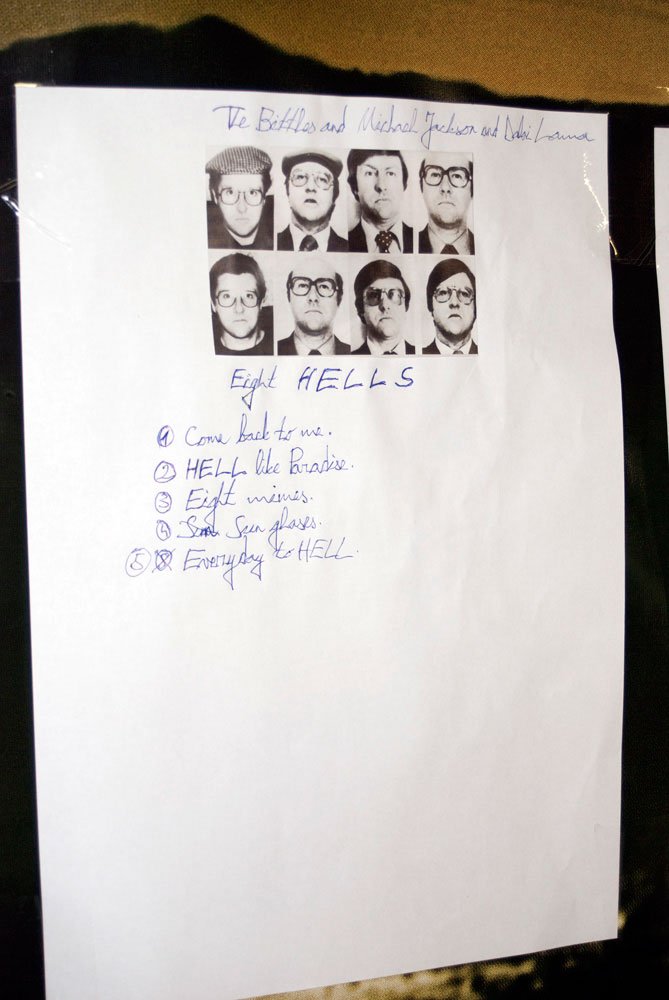 The Bittles and Michael Jackson and Dabi
Eight HELLS
1 Come back to me.
2 HELL like Paradise.
3 Eight mimes.
4 Sun glases.
5 Everyday to HELL.